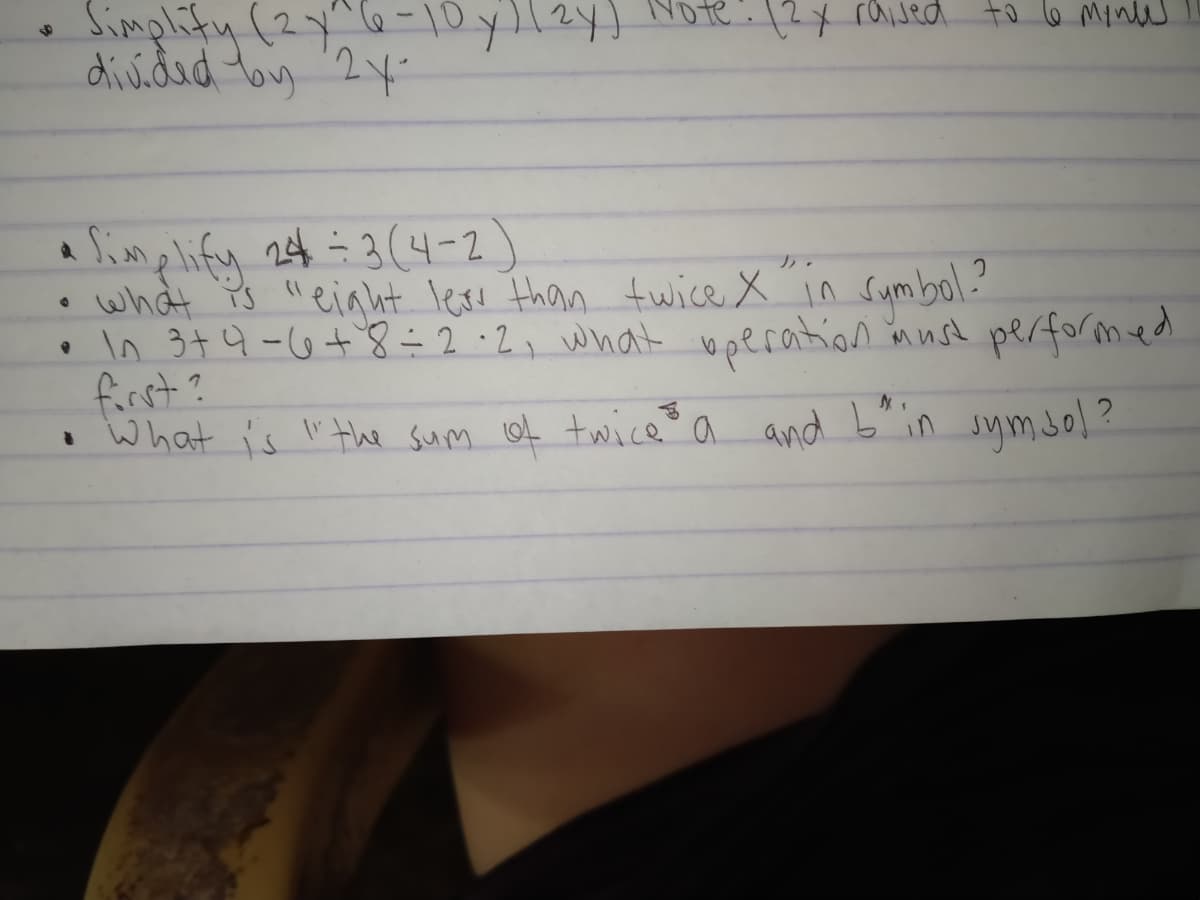 • Simplify (2y^6-10y)(2y) Note: (2y raised to 6 minus
divided by 2y.
• Simplify 24 ÷ 3(4-2)
• what is "eight less than twice X" in symbol?
• In 3+4-6+8÷2·2, what operation must performed
first?
• What is "the sum of twice a and b" in symbol?